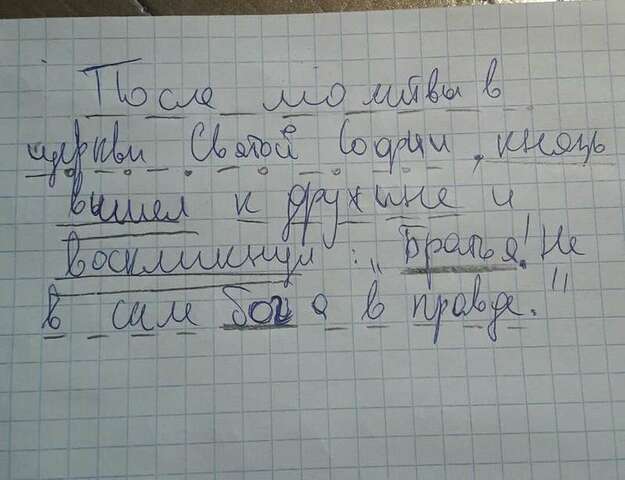 После молитвы в
церкви Святой Софии, князь
вышел к дружине и
воскликнул: „Братья! Не
в силе бог а в правде."